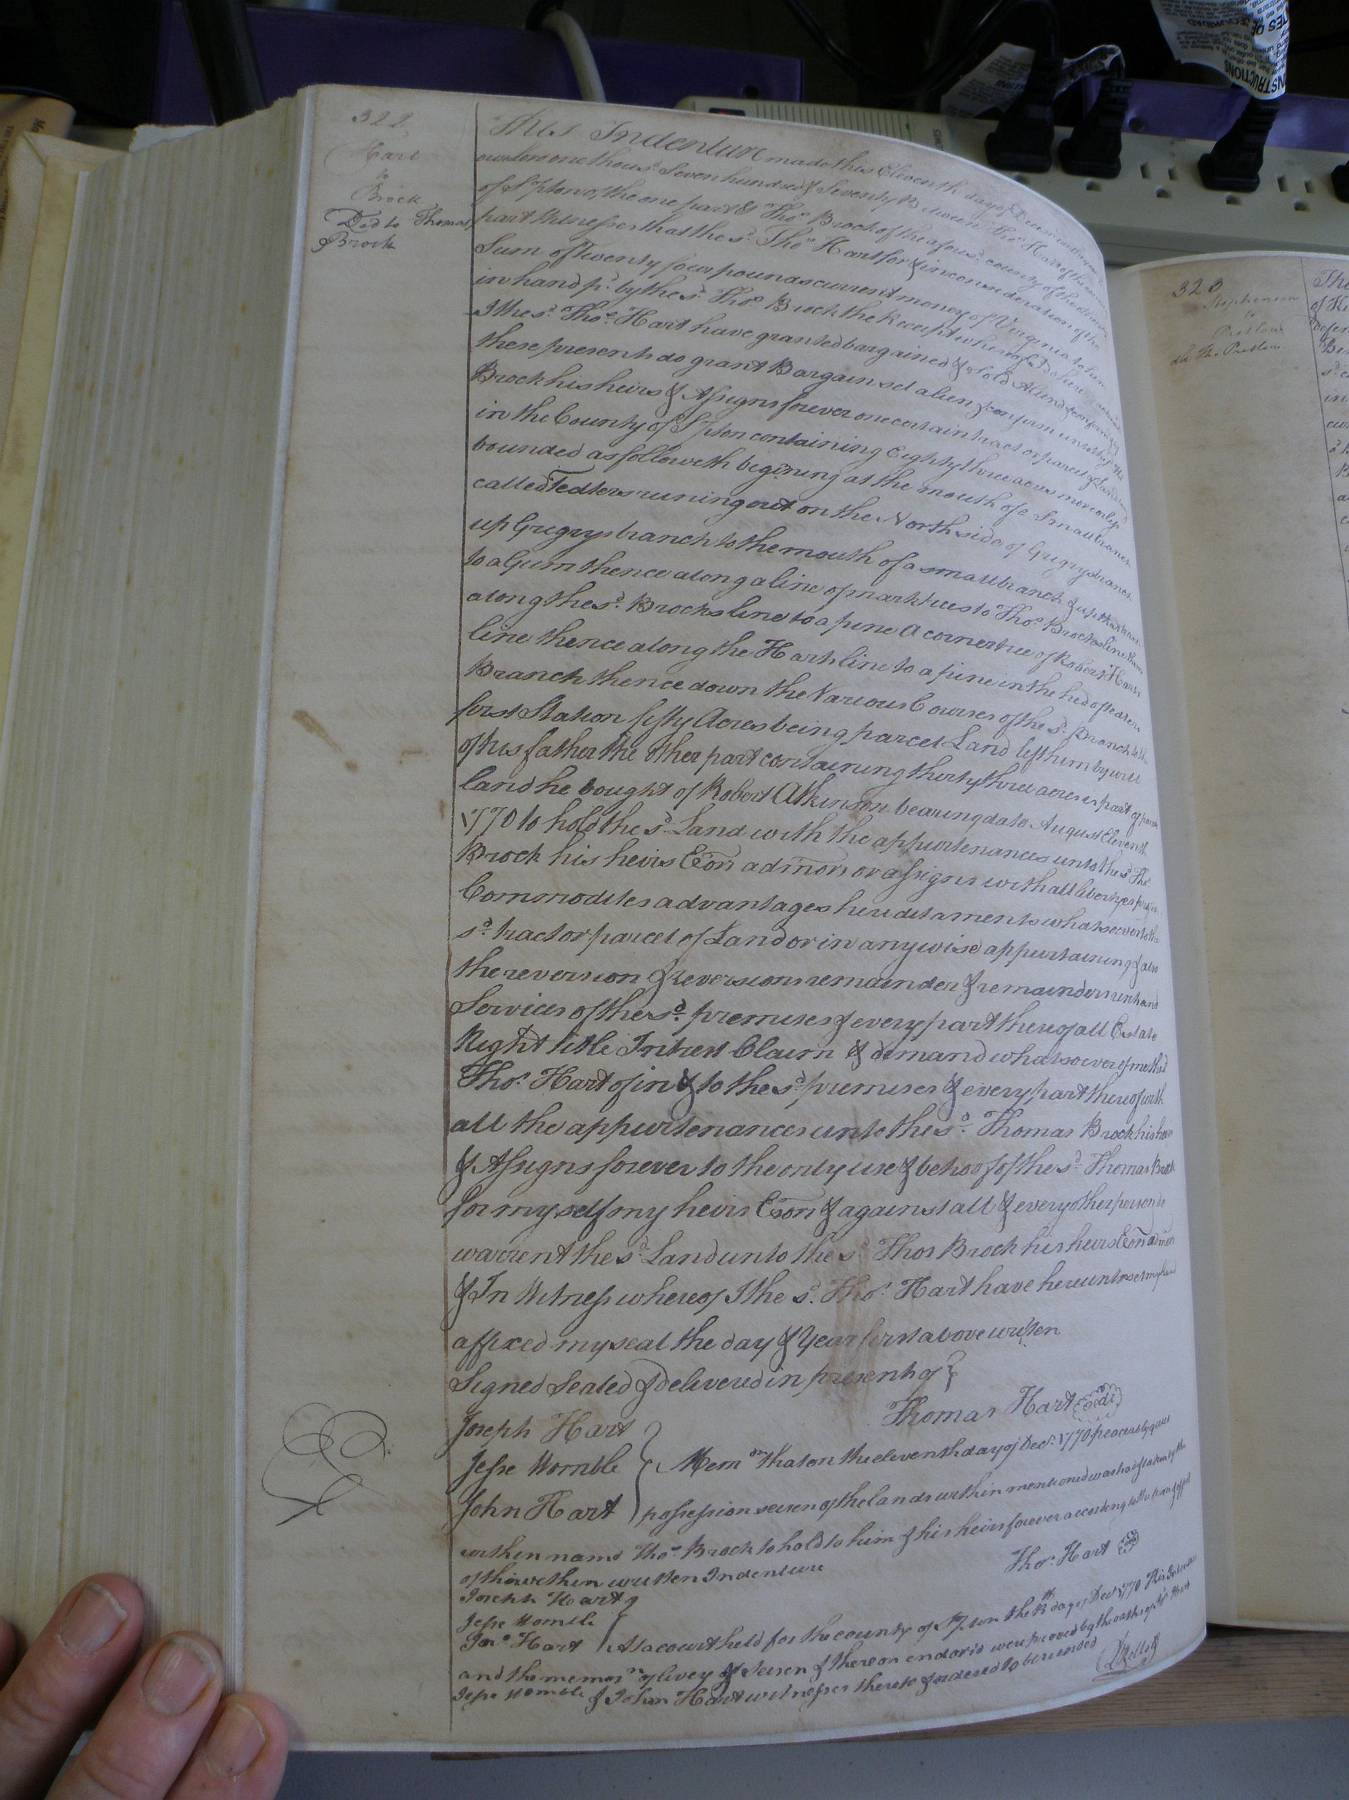 322
Hart
to
Brock
Ded to Thomas
Brock
This Indenture made this Eleventh day of December in the year
our Lord one thous.d Seven hundred & Seventy Between Tho.s Hart of the
of S.hpton of the one part & Tho.s Brock of the afous.d county of the other
part Witnesses that the s.d Tho.s Hart for & in consideration of the
Sum of Twenty four pounds current money of Virginia to him
in hand p.d by the s.d Tho.s Brock the Receipt whereof I do here
I the s.d Tho.s Hart have granted bargained & Sold Aliend & confirm'd & by
these presents do grant Bargain sel alien & confirm unto the s.d Tho.s
Brock his heirs & Assigns forever one certain tract or parcel of Land
in the County of S.hpton containing Eighty three acres more or less
bounded as followeth begining at the mouth of a Small branch
called Tedlers runing out on the North side of Gregrys branch
up Gregrys branch to the mouth of a small branch & up that
to a Gum thence along a line of markt trees to Tho.s Brocks line thence
along the s.d Brocks line to a pine A corner tree of Robert Harts
line thence along the Harts line to a pine in the hed of
Branch thence down the Various Courses of the s.d Branch to the
first Station fifty Acres being parcel Land left him by will
of his father the other part containing thirty three acres is part of
land he bought of Robert Atkinson bearing date August Eleventh
1770 to hold the s.d Land with the appurtenances unto the s.d Tho.s
Brock his heirs Exōn admōn or assigns with all
Commodites advantages hereditaments whatsoever to the
s.d tract or parcel of Land or in any wise appurtaining & also
the reversion & reversions remainder & remainders rents and
Services of the s.d premises & every part thereof all Estate
Right title Intrest Claim & demand whatsoever of me the s.d
Tho.s Hart of in & to the s.d premises & every part thereof with
all the appurtenances unto the s.d Thomas Brock his heirs
& Assigns forever to the only use & behoof of the s.d Thomas Brock
for my self my heirs Exōn & against all & every other person
warrent the s.d Land unto the s.d Thos Brock his heirs Exōn admōn
& In Witness whereof I the s.d Tho.s Hart have hereunto set my hand
affixed my seal the day & Year first above written
Signed Sealed & delivered in presents of }
Thomas Hart Seal
Joseph Hart
Jesse Womble
John Hart
Mem.m that on the eleventh day of Dec.r 1770 peaceably quiet
possession seisen of the lands within mentioned was had & taken by the
within name Tho.s Brock to hold to him & his heirs forever according to the
of the within written Indenture
Tho.s Hart
Joseph Hart
Jesse Womble
Jn.o Hart
At a court held for the county of S.hpton the day of Dec.r 1770 this Indenture
and the memor.m of livey & Seisen thereon endors'd were proved by the oaths of
Jesse Womble & John Hart witnesses thereto & ordered to be recorded
323
Stephenson
to
Pretlow